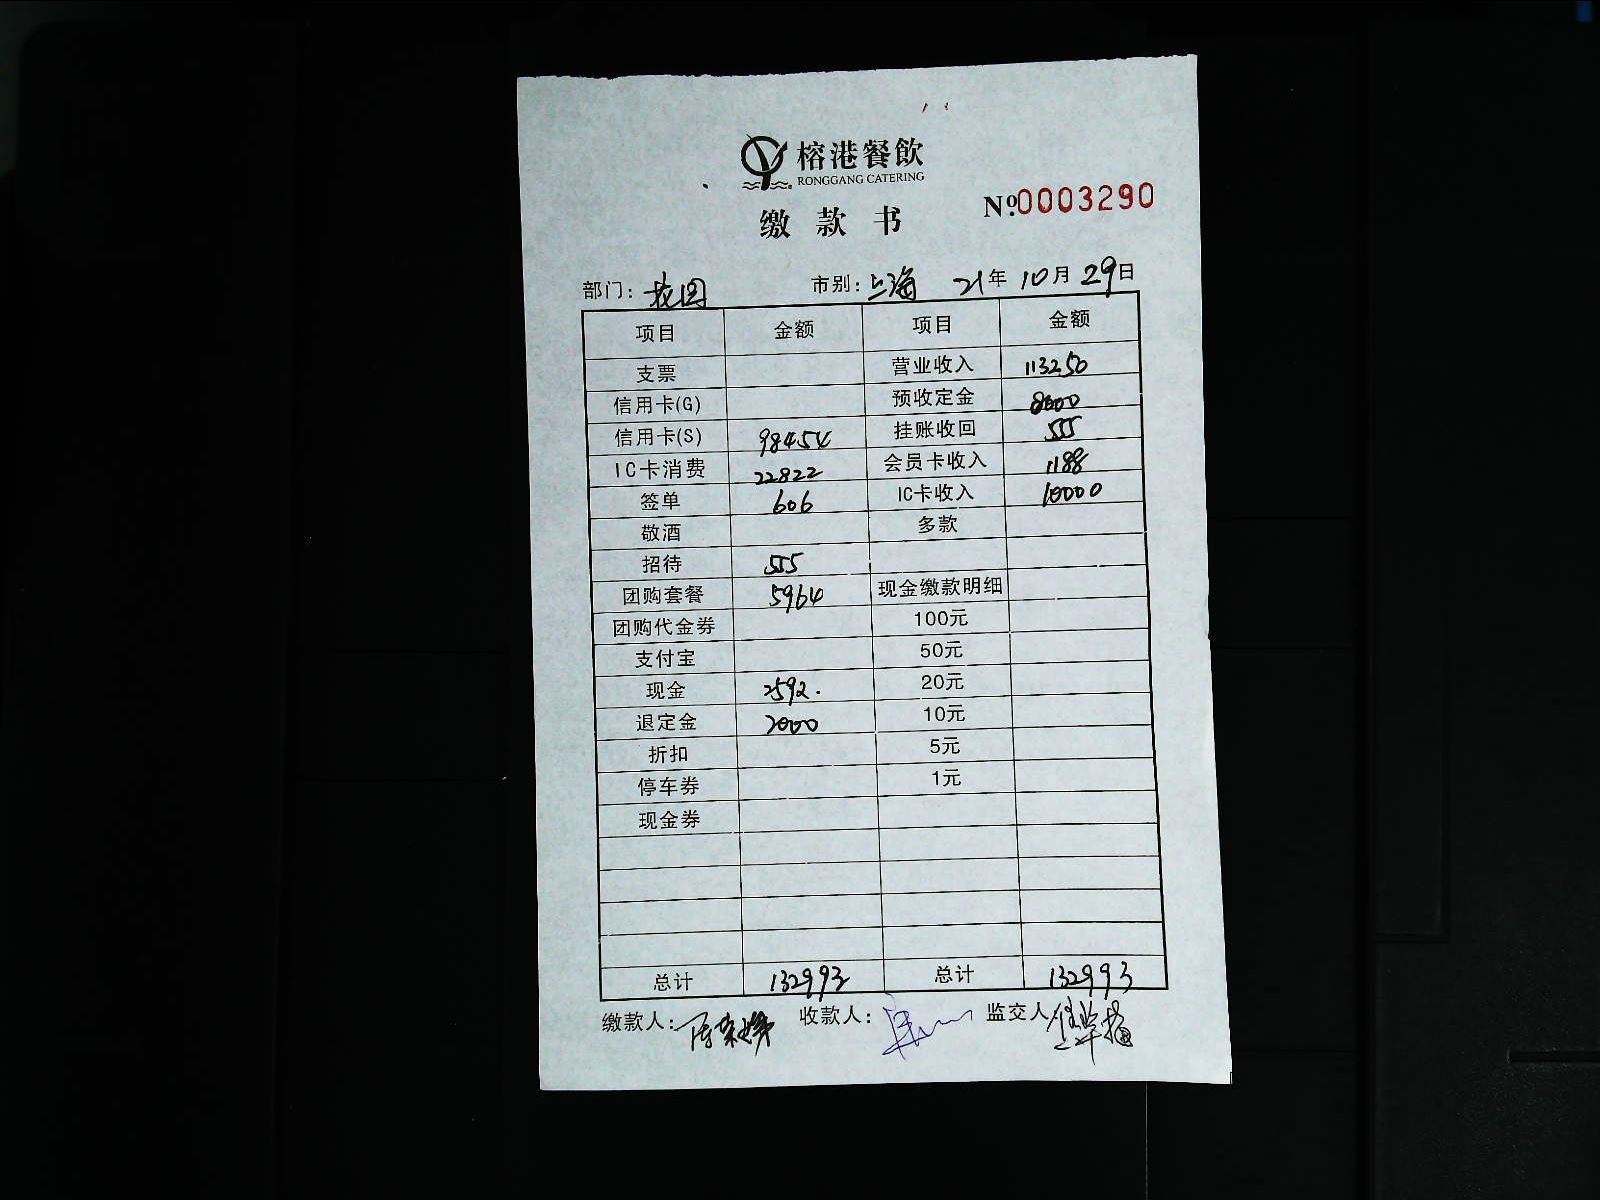 榕港餐飲
RONGGANG CATERING
缴款书
№0003290
部门：花园 市别：上海 21年10月29日
项目 金额 项目 金额
支票 营业收入 113250
信用卡(G) 预收定金 8000
信用卡(S) 98454 挂账收回 555
IC卡消费 22822 会员卡收入 1188
签单 606 IC卡收入 10000
敬酒 多款
招待 555
团购套餐 5964 现金缴款明细
团购代金券 100元
支付宝 50元
现金 2592. 20元
退定金 2000 10元
折扣 5元
停车券 1元
现金券
总计 132993 总计 132993
缴款人： 收款人： 监交人